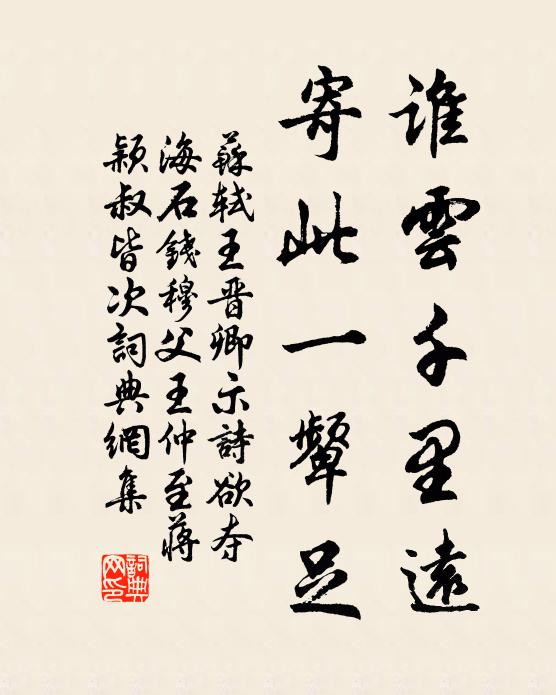 誰雲千里遠
寄此一顰足
蘇軾王晋卿示詩欲奪
海石錢穆父王仲至蔣
穎叔皆次詞典網集
詞典
网印